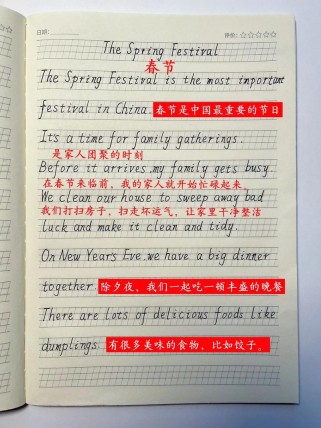 日期:
评价: ☆☆☆☆☆
The Spring Festival
春节
The Spring Festival is the most inportant
festival in China. 春节是中国最重要的节日
It's a time for family gatherings.
是家人团聚的时刻
Before it arrives.my family gets busy
在春节来临前，我的家人就开始忙碌起来。
We clean our house to sweep away bad
我们打扫房子，扫走坏运气，让家里干净整洁
luck and make it clean and tidy.
On New Years Eve.we have a big dinner
together. 除夕夜，我们一起吃一顿丰盛的晚餐
There are lots of delicious foods like
dumplings. 有很多美味的食物，比如饺子。